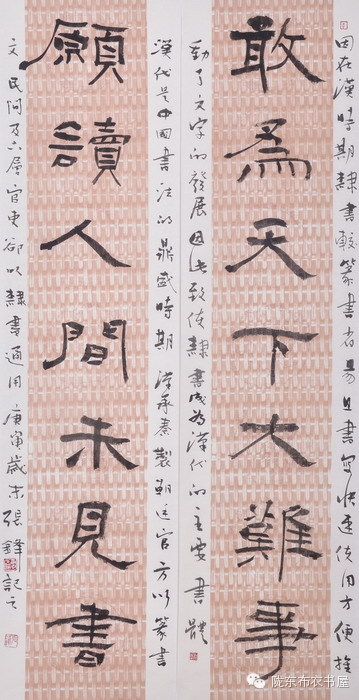 因在漢時期隸書較篆書者易且書寫快速使用方便推
敢為天下大難事
動了文字的發展因此致使隸書成為漢代的主要書體
漢代是中國書法的鼎盛時期漢承秦製朝廷官方以篆書
願讀人間未見書
文民間及下層官吏卻以隸書通用庚寅歲末張鋒記之
陇东布衣书屋